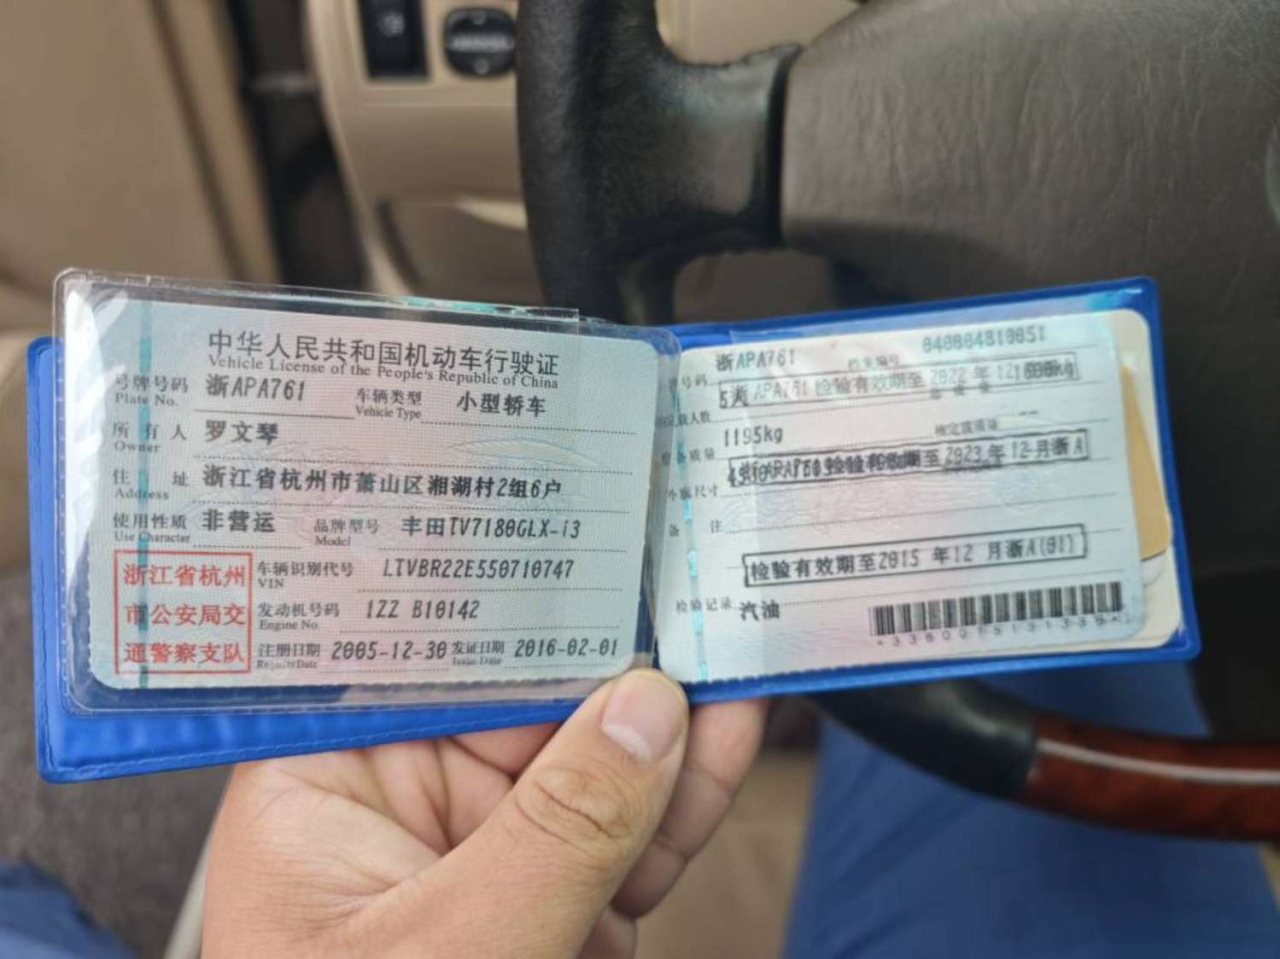 中华人民共和国机动车行驶证
Vehicle License of the People's Republic of China
号牌号码 浙APA761 车辆类型 小型轿车
Plate No. Vehicle Type
所有人 罗文琴
Owner
住址 浙江省杭州市萧山区湘湖村2组6户
Address
使用性质 非营运 品牌型号 丰田TV7180GLX-i3
Use Character Model
浙江省杭州 市公安局交 通警察支队
车辆识别代号 LTVBR22E550710747
VIN
发动机号码 1ZZ B10142
Engine No.
注册日期 2005-12-30 发证日期 2016-02-01
Register Date Issue Date
号码 浙APA761 档案编号 040004810051
浙APA761 检验有效期至 2022 年 12
人数
质量 1195kg
检验有效期至 2023 年 12 月浙A
外廓尺寸
备注
检验有效期至2015 年 12 月浙A(01)
检验记录 汽油